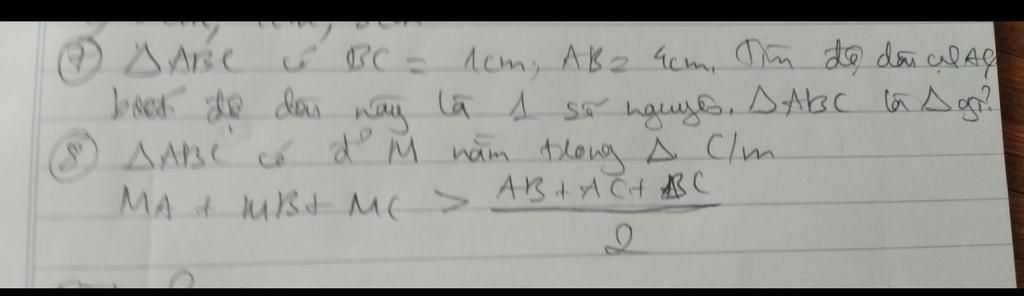 ⑦ ΔABC có BC = 1cm, AB = 4cm. Tìm độ dài cạ AC
biết độ dài này là 1 số nguyên. ΔABC là Δ gì?
⑧ ΔABC có đ° M nằm trong Δ C/m
MA + MB + MC > \frac{AB + AC + BC}{2}